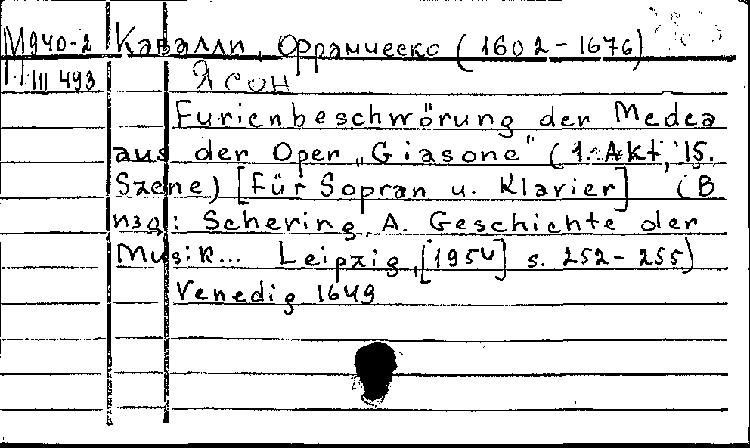 М940-2 Кавалли, Франческо (1602-1676)
III 493 Ясон
Furienbeschwörung der Medea
aus der Oper „Giasone" (1. Akt, 15.
Szene) [Für Sopran u. Klavier] (В
изд: Schering, A. Geschichte der
Musik... Leipzig, [1954] s. 252-255)
Venedig 1649